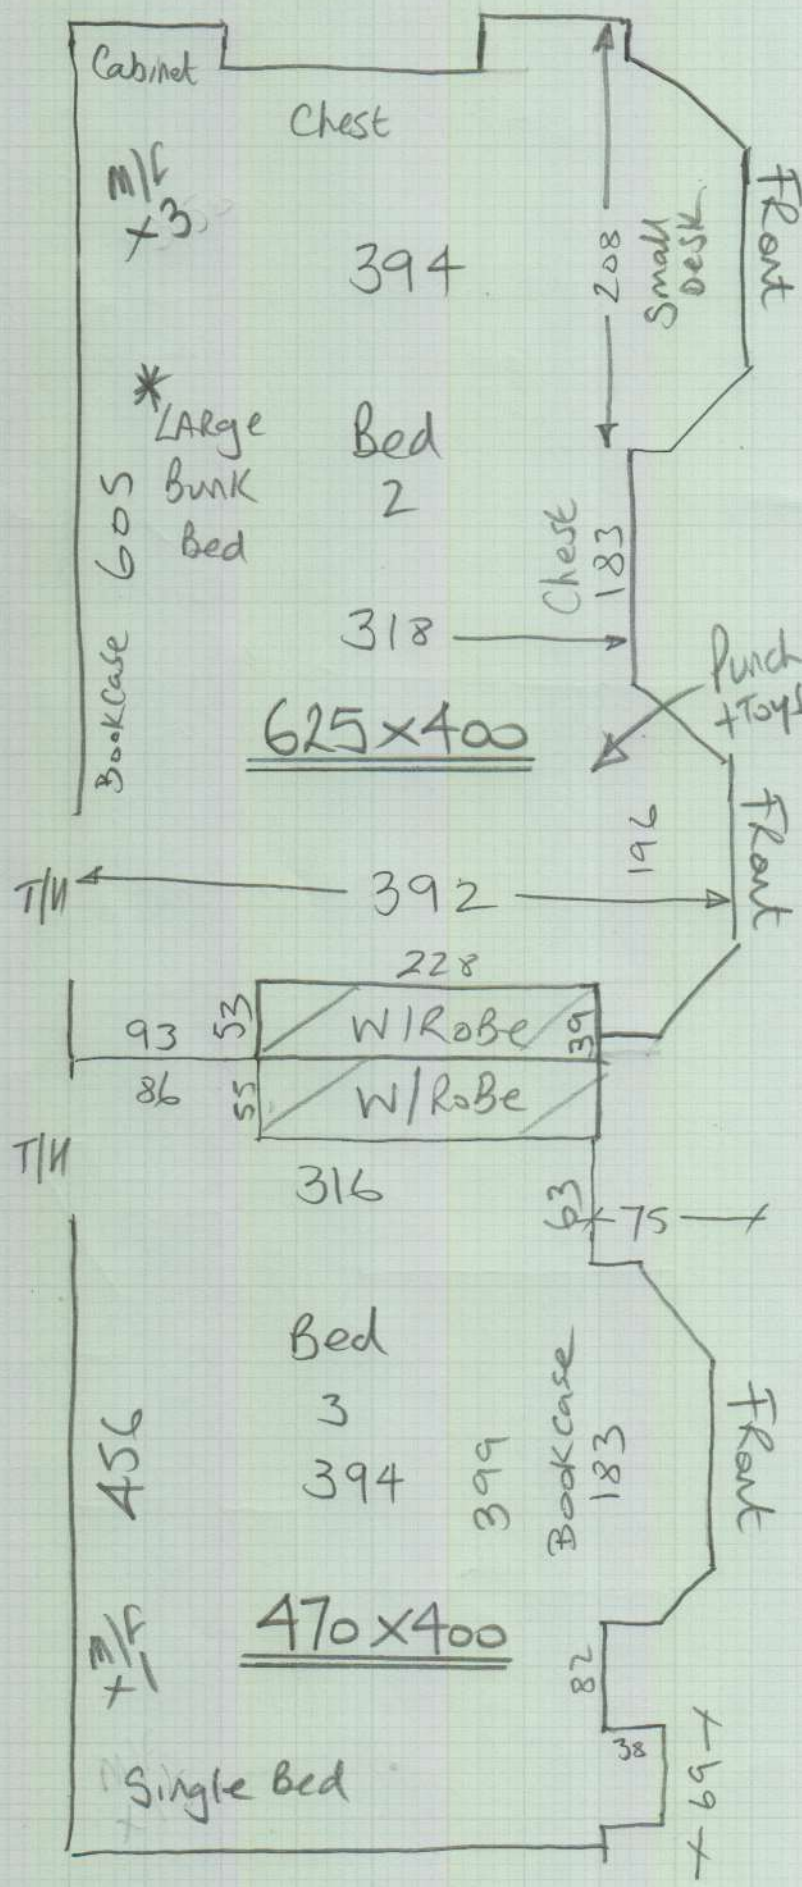 Cabinet
Chest
M/F
x3
394
208
Small
Desk
FRont
*
LARge
Bunk
Bed
605
Bookcase
Bed
2
Chest
183
318
Punch
+Toys
625x400
196
FRont
T/H
392
228
93
53
W/RoBe
39
86
55
W/RoBe
T/H
316
63
75
Bed
3
394
399
Bookcase
183
FRont
456
M/F
x1
470x400
82
38
69
Single Bed